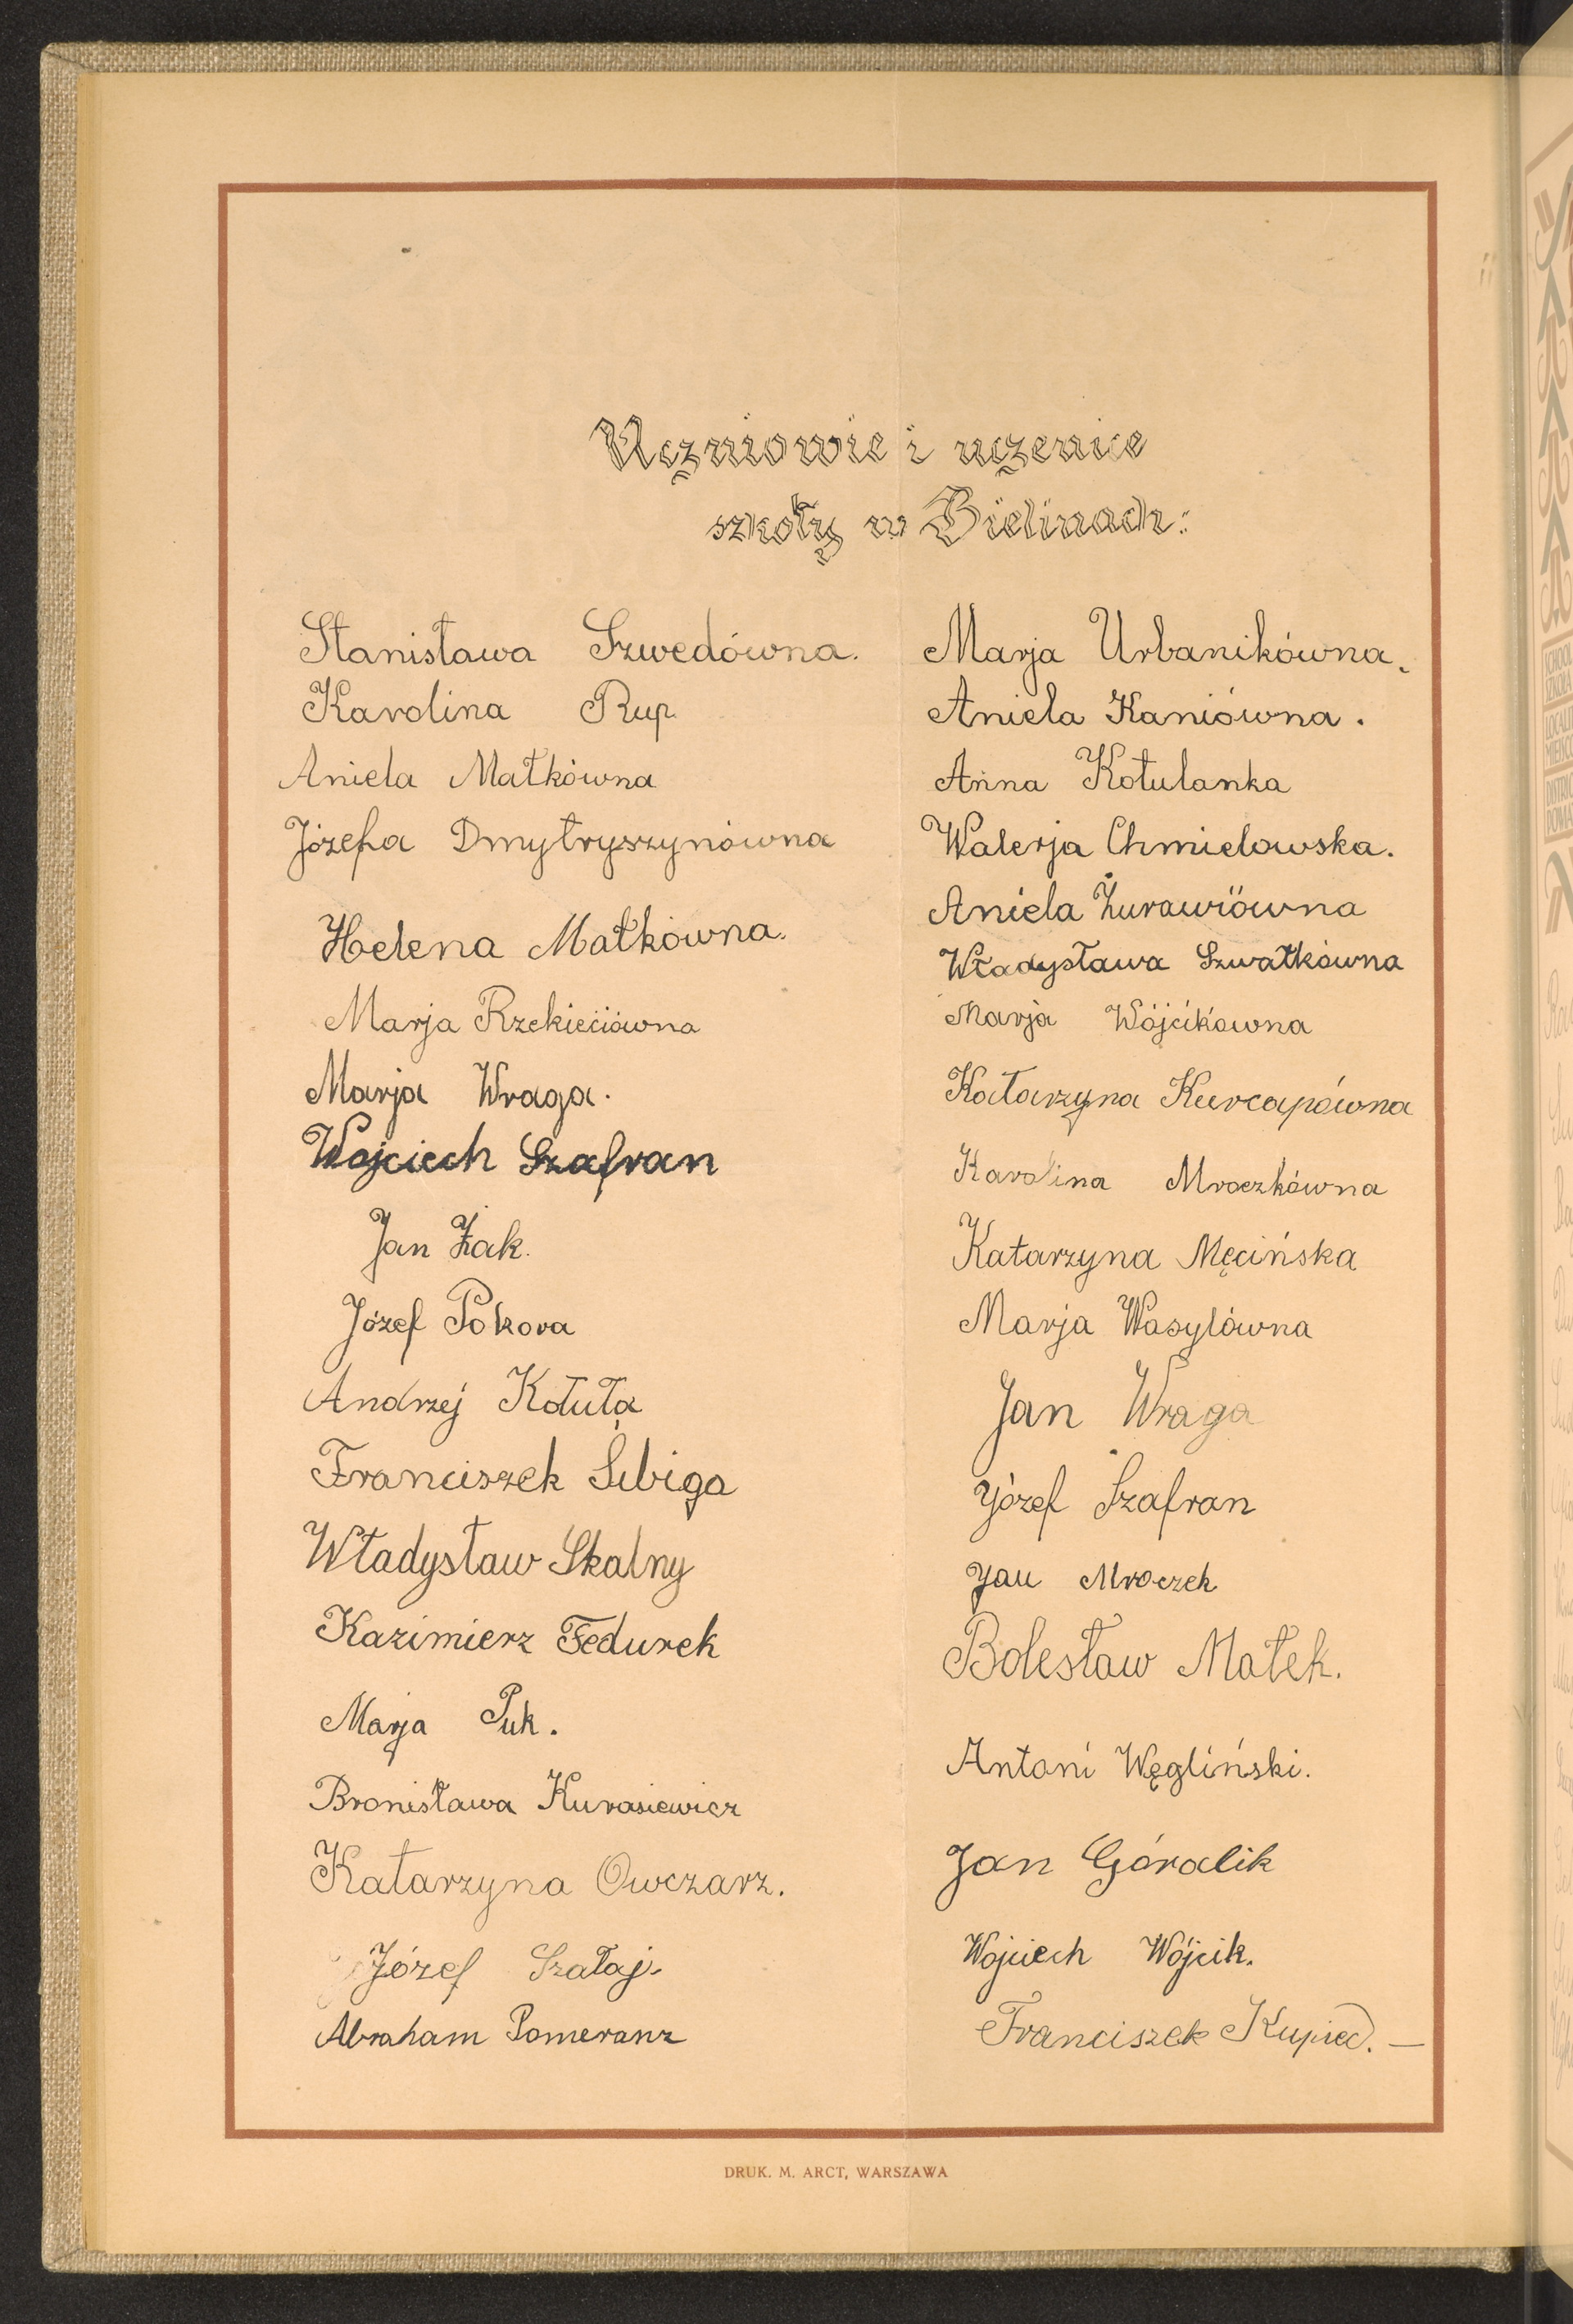 Uczniowie i uczenice
szkoły w Bielinach:
Stanisława Szwedówna.
Karolina Rup.
Aniela Małkówna
Józefa Dmytryszynówna
Helena Małkówna.
Marja Rzekiecióẃna
Marja Wraga.
Wojciech Szafran
Jan Żak.
Józef Pokora
Andrzej Kotuła
Franciszek Sibiga
Władysław Skalny
Kazimierz Fedurek
Marja Puk.
Bronisława Kurasiewicz
Katarzyna Owczarz.
Józef Szałaj.
Abraham Pomeranz
Marja Urbanikówna.
Aniela Kaniówna.
Anna Kotulanka
Walerja Chmielowska.
Aniela Żurawiówna
Władysława Szwałkówna
Marja Wójcikówna
Katarzyna Kurcapówna
Karolina Mroczkówna
Katarzyna Męcińska
Marja Wasylówna
Jan Wraga
Józef Szafran
Jan Mroczek
Bolesław Małek.
Antoni Węgliński.
Jan Góralik
Wojciech Wójcik.
Franciszek Kupiec. —
DRUK. M. ARCT, WARSZAWA